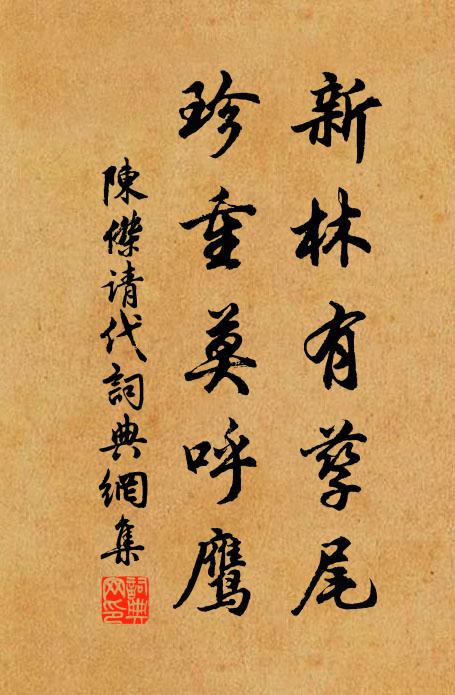 新林有孳尾
珍重莫呼鹰
陳傑请代詞典網集
詞典网印